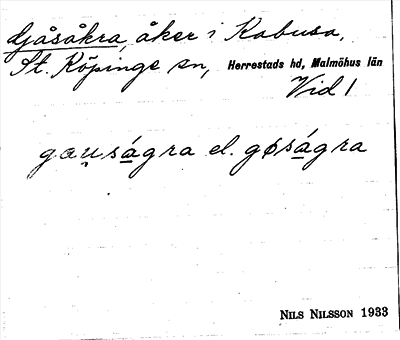 Gåsåkra, åker i Kabusa,
St. Köpinge sn, Herrestads hd, Malmöhus län
Vid 1
gau̯ságra el. gøságra
NILS NILSSON 1933